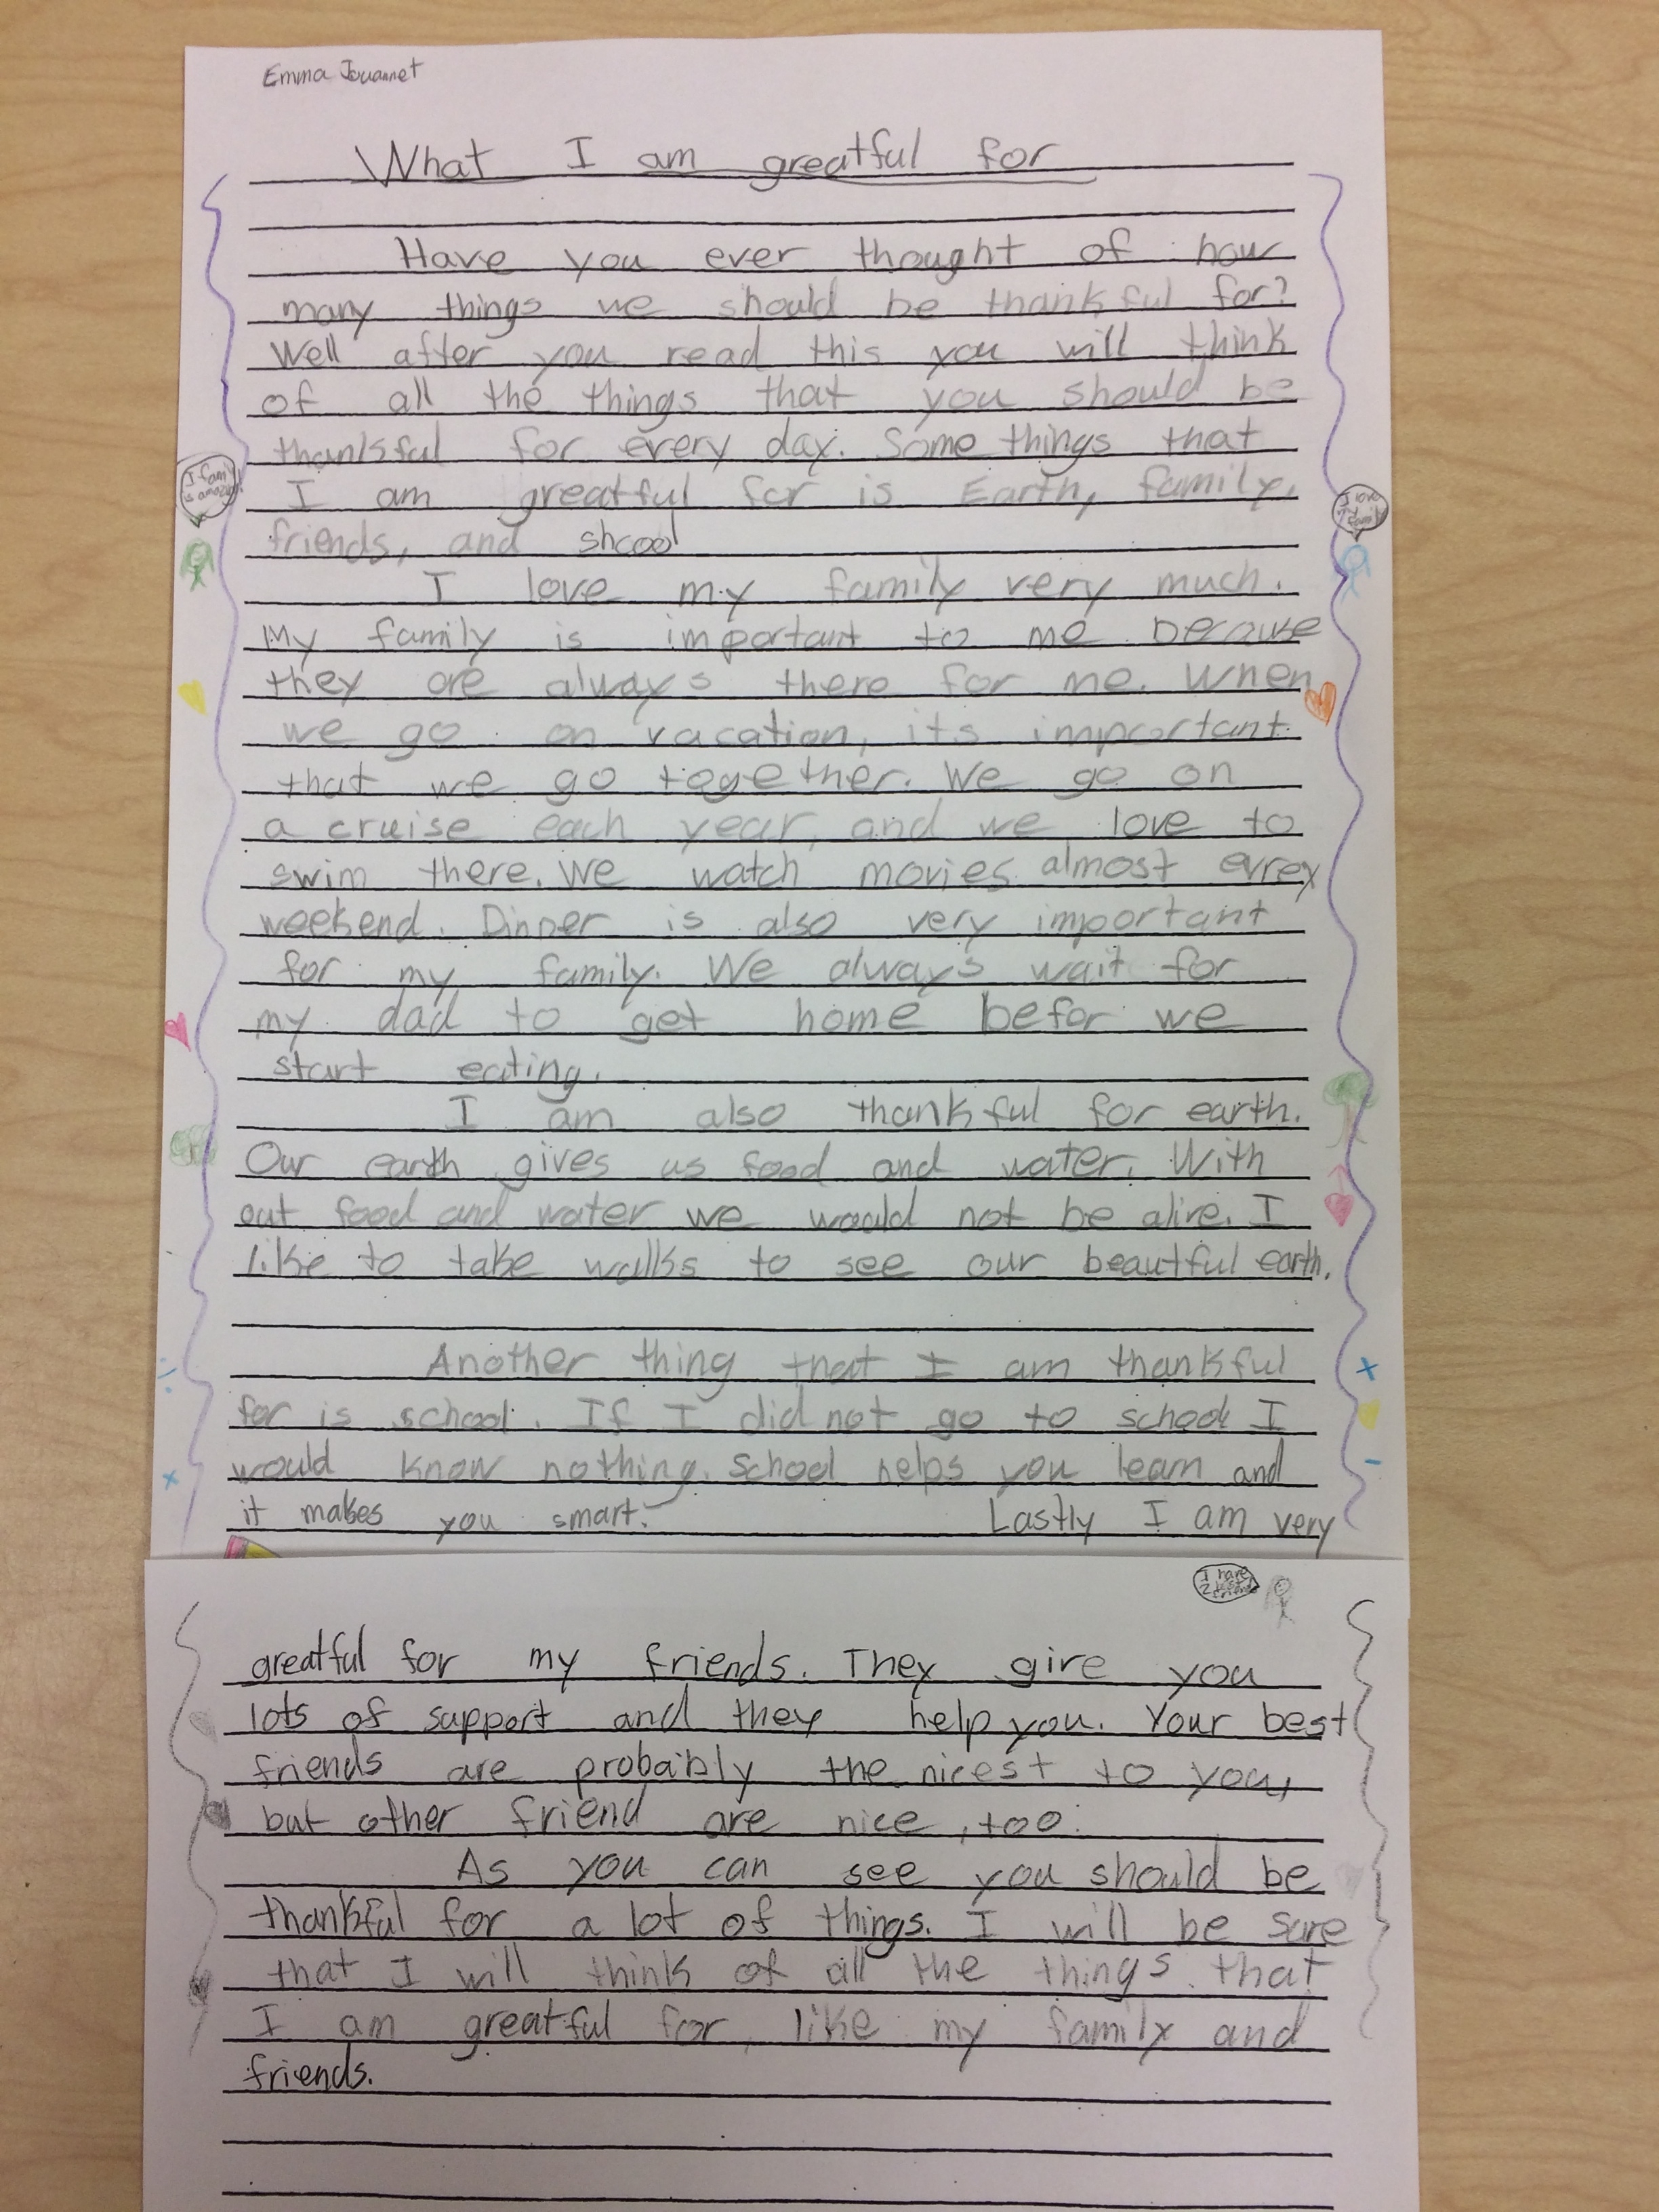 Emma Jouannet
What I am greatful for
Have you ever thought of how
many things we should be thankful for?
Well after you read this you will think
of all the things that you should be
thankful for every day. Some things that
I am greatful for is Earth, family,
friends, and shcool
I love my family very much.
My family is important to me because
they are always there for me. When
we go on vacation, its important
that we go together. We go on
a cruise each year, and we love to
swim there. We watch movies almost evrey
weekend. Dinner is also very important
for my family. We always wait for
my dad to get home befor we
start eating.
I am also thankful for earth.
Our earth gives us food and water. With
out food and water we would not be alive. I
like to take walks to see our beautful earth.
Another thing that I am thankful
for is school. If I did not go to school I
would know nothing. School helps you learn and
it makes you smart. Lastly I am very
I love my family
I have 2 best friends
greatful for my friends. They give you
lots of support and they help you. Your best
friends are probably the nicest to you,
but other friend are nice, too.
As you can see you should be
thankful for a lot of things. I will be sure
that I will think of all the things that
I am greatful for, like my family and
friends.